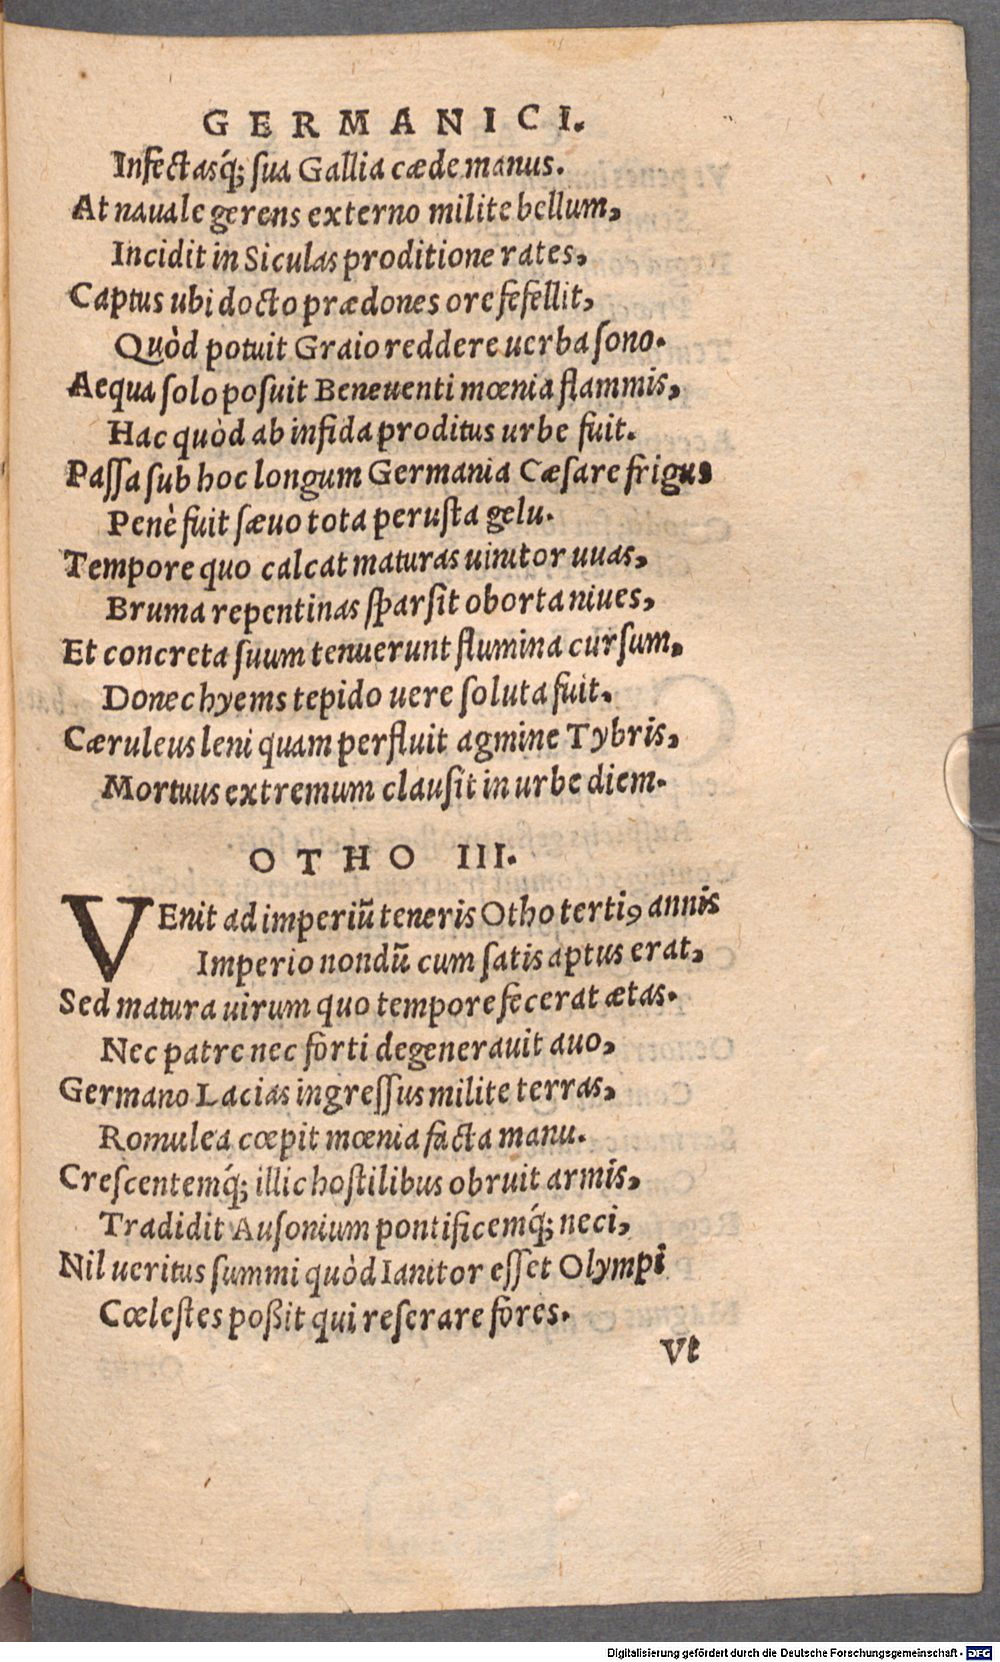 GERMANICI.
Infectasq́; sua Gallia cæde manus.
At nauale gerens externo milite bellum,
Incidit in Siculas proditione rates,
Captus ubi docto prædones ore fefellit,
Quòd potuit Graio reddere uerba sono.
Aequa solo posuit Beneuenti mœnia flammis,
Hac quòd ab infida proditus urbe fuit.
Passa sub hoc longum Germania Cæsare frigus
Penè fuit sæuo tota perusta gelu.
Tempore quo calcat maturas uinitor uuas,
Bruma repentinas sparsit oborta niues,
Et concreta suum tenuerunt flumina cursum,
Donec hyems tepido uere soluta fuit.
Cæruleus leni quam perfluit agmine Tybris,
Mortuus extremum clausit in urbe diem.
OTHO III.
VEnit ad imperiū teneris Otho tertiꝰ annis
Imperio nondū cum satis aptus erat,
Sed matura uirum quo tempore fecerat ætas.
Nec patre nec forti degenerauit auo,
Germano Lacias ingressus milite terras,
Romulea cœpit mœnia facta manu.
Crescentemq́; illic hostilibus obruit armis,
Tradidit Ausonium pontificemq́; neci,
Nil ueritus summi quòd Ianitor esset Olympi
Cœlestes poßit qui reserare fores.
Vt
Digitalisierung gefördert durch die Deutsche Forschungsgemeinschaft - DFG